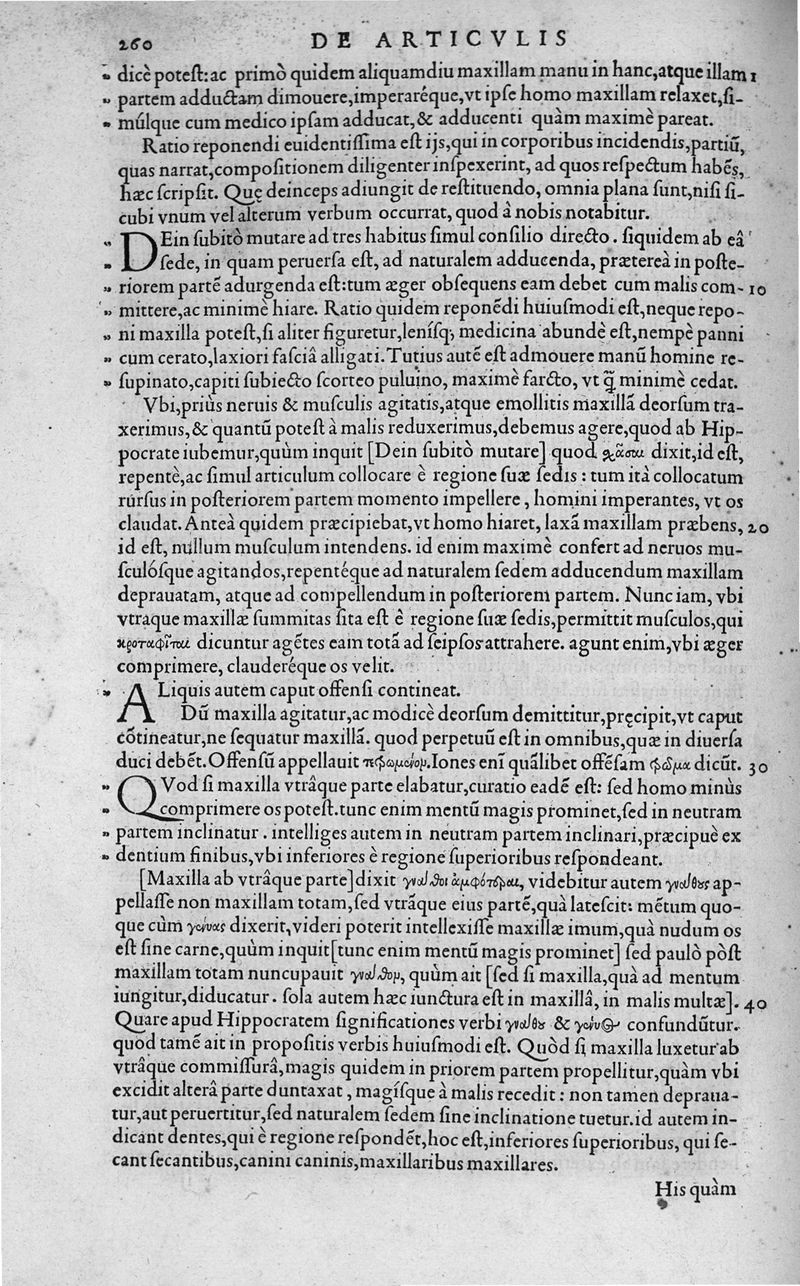 260 DE ARTICVLIS
dicè potest: ac primò quidem aliquamdiu maxillam manu in hanc, atque illam 1
partem adductam dimouere, imperaréque, vt ipse homo maxillam relaxet, si-
múlque cum medico ipsam adducat, & adducenti quàm maximè pareat.
Ratio reponendi euidentissima est ijs, qui in corporibus incidendis, partiũ,
quas narrat, compositionem diligenter inspexerint, ad quos respectum habẽs,
hæc scripsit. Quę deinceps adiungit de restituendo, omnia plana sunt, nisi si-
cubi vnum vel alterum verbum occurrat, quod à nobis notabitur.
DEin subitò mutare ad tres habitus simul consilio directo. siquidem ab eâ
sede, in quam peruersa est, ad naturalem adducenda, prætereà in poste-
riorem partẽ adurgenda est: tum æger obsequens eam debet cum malis com- 10
mittere, ac minimè hiare. Ratio quidem reponẽdi huiusmodi est, neque repo-
ni maxilla potest, si aliter figuretur, lenísq; medicina abundè est, nempè panni
cum cerato, laxiori fasciâ alligati. Tutius autẽ est admouere manũ homine re-
supinato, capiti subiecto scorteo puluino, maximè farcto, vt q̃ minimè cedat.
Vbi, priùs neruis & musculis agitatis, atque emollitis maxillã deorsum tra-
xerimus, & quantũ potest à malis reduxerimus, debemus agere, quod ab Hip-
pocrate iubemur, quùm inquit [Dein subitò mutare] quod χᾶσαι dixit, id est,
repentè, ac simul articulum collocare è regione suæ sedis: tum ità collocatum
rúrsus in posteriorem partem momento impellere, homini imperantes, vt os
claudat. Anteà quidem præcipiebat, vt homo hiaret, laxã maxillam præbens, 20
id est, nullum musculum intendens. id enim maximè confert ad neruos mu-
sculósque agitandos, repentéque ad naturalem sedem adducendum maxillam
deprauatam, atque ad compellendum in posteriorem partem. Nunc iam, vbi
vtraque maxillæ summitas sita est è regione suæ sedis, permittit musculos, qui
κροταφῖται dicuntur agẽtes eam totã ad seipsos attrahere. agunt enim, vbi æger
comprimere, clauderéque os velit.
ALiquis autem caput offensi contineat.
Dũ maxilla agitatur, ac modicè deorsum demittitur, pręcipit, vt caput
cõtineatur, ne sequatur maxillã. quod perpetuũ est in omnibus, quæ in diuersa
duci debẽt. Offensũ appellauit Iones enĩ quãlibet offẽsam dicũt. 30
QVod si maxilla vtrâque parte elabatur, curatio eadẽ est: sed homo minùs
comprimere os potest. tunc enim mentũ magis prominet, sed in neutram
partem inclinatur. intelliges autem in neutram partem inclinari, præcipuè ex
dentium finibus, vbi inferiores è regione superioribus respondeant.
[Maxilla ab vtrâque parte] dixit γνάθοι ἀμφότεραι, videbitur autem γνάθους ap-
pellasse non maxillam totam, sed vtrãque eius partẽ, quà latescit: mẽtum quo-
que cùm γένυας dixerit, videri poterit intellexisse maxillæ imum, quà nudum os
est sine carne, quùm inquit [tunc enim mentũ magis prominet] sed paulò pòst
maxillam totam nuncupauit γνάθον, quùm ait [sed si maxilla, quà ad mentum
iungitur, diducatur. sola autem hæc iunctura est in maxillâ, in malis multæ]. 40
Quare apud Hippocratem significationes verbi γνάθου & γένυος confundũtur.
quod tamẽ ait in propositis verbis huiusmodi est. Quòd si maxilla luxetur ab
vtrâque commissurâ, magis quidem in priorem partem propellitur, quàm vbi
excidit alterâ parte duntaxat, magísque à malis recedit: non tamen depraua-
tur, aut peruertitur, sed naturalem sedem sine inclinatione tuetur. id autem in-
dicant dentes, qui è regione respondẽt, hoc est, inferiores superioribus, qui se-
cant secantibus, canini caninis, maxillaribus maxillares.
His quàm